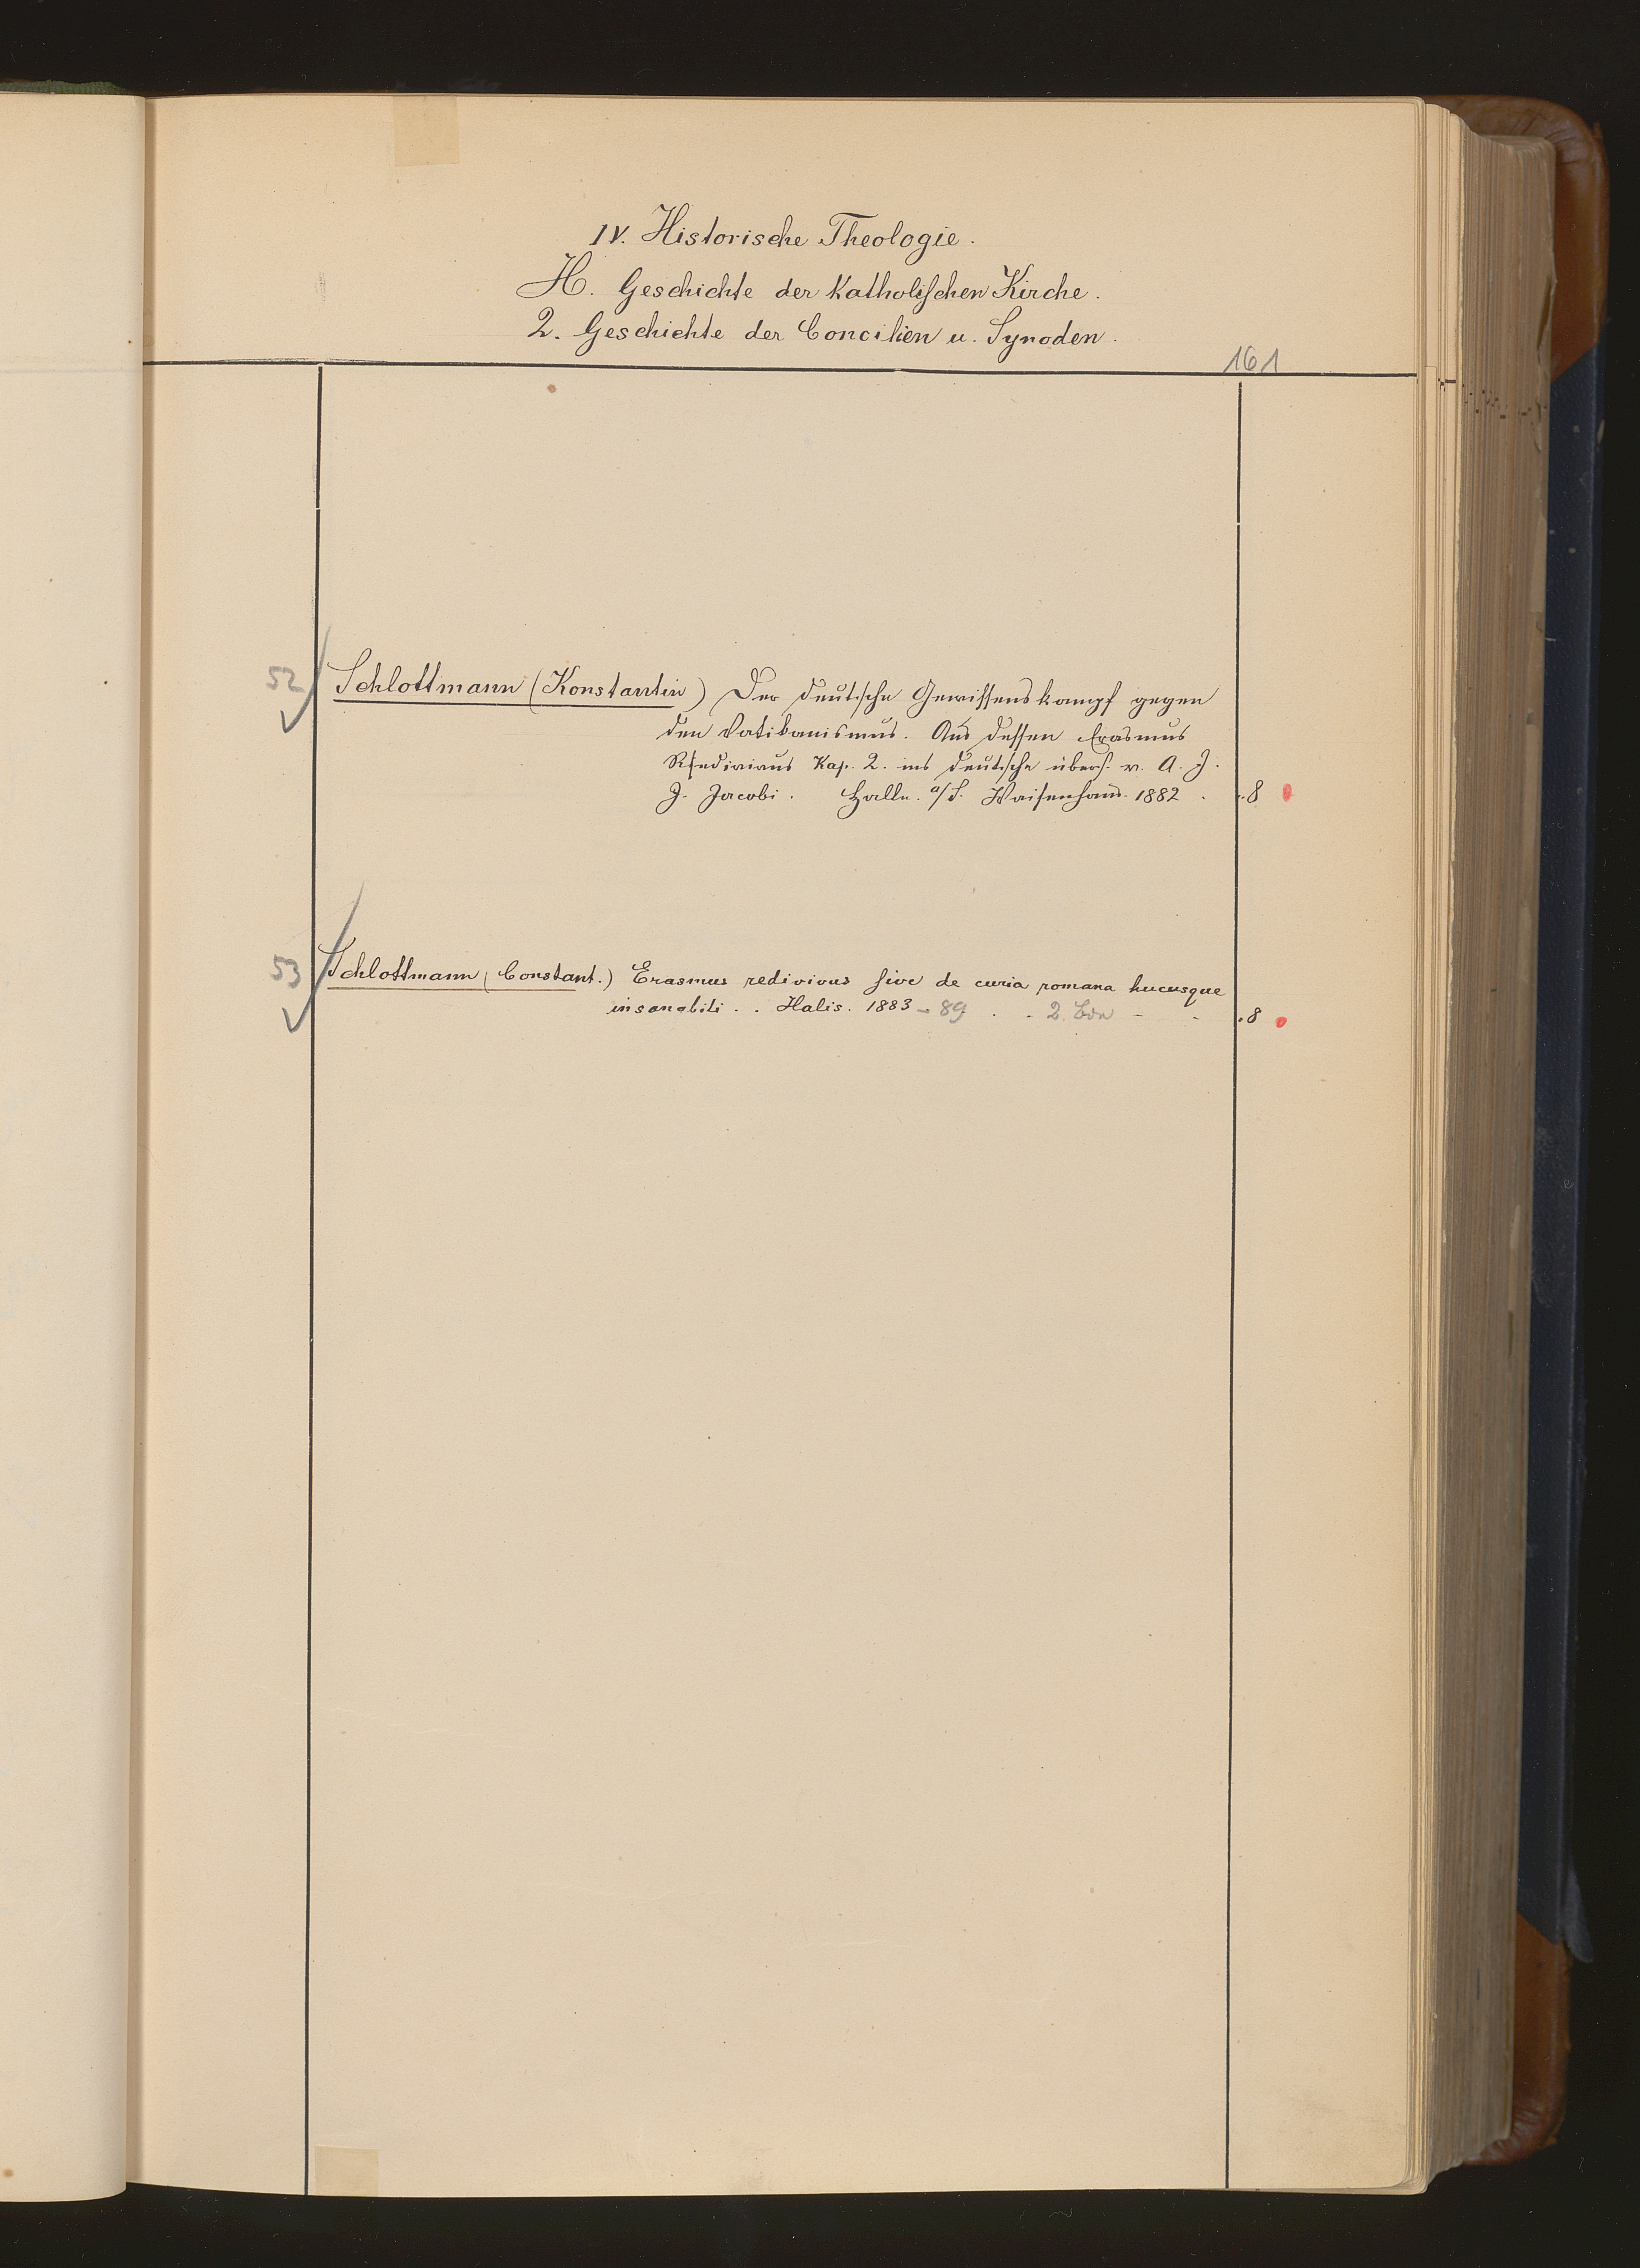 IV. Historische Theologie.
H. Geschichte der Katholischen Kirche.
2. Geschichte der Concilien u. Synoden.
161
52 Schlottmann (Konstantin) Der deutsche Gewissenskampf gegen
den Vatikanismus. Aus dessen Erasmus
Redivivus Kap. 2. ins deutsche übers. v. A. J.
J. Jacobi. Halle. a/S. Waisenhaus. 1882 . . 8
53 Schlottmann (Constant.) Erasmus redivivus sive de curia romana hucusque
insanabili . . Halis. 1883 - 89 . . 2 Bde - - . 8